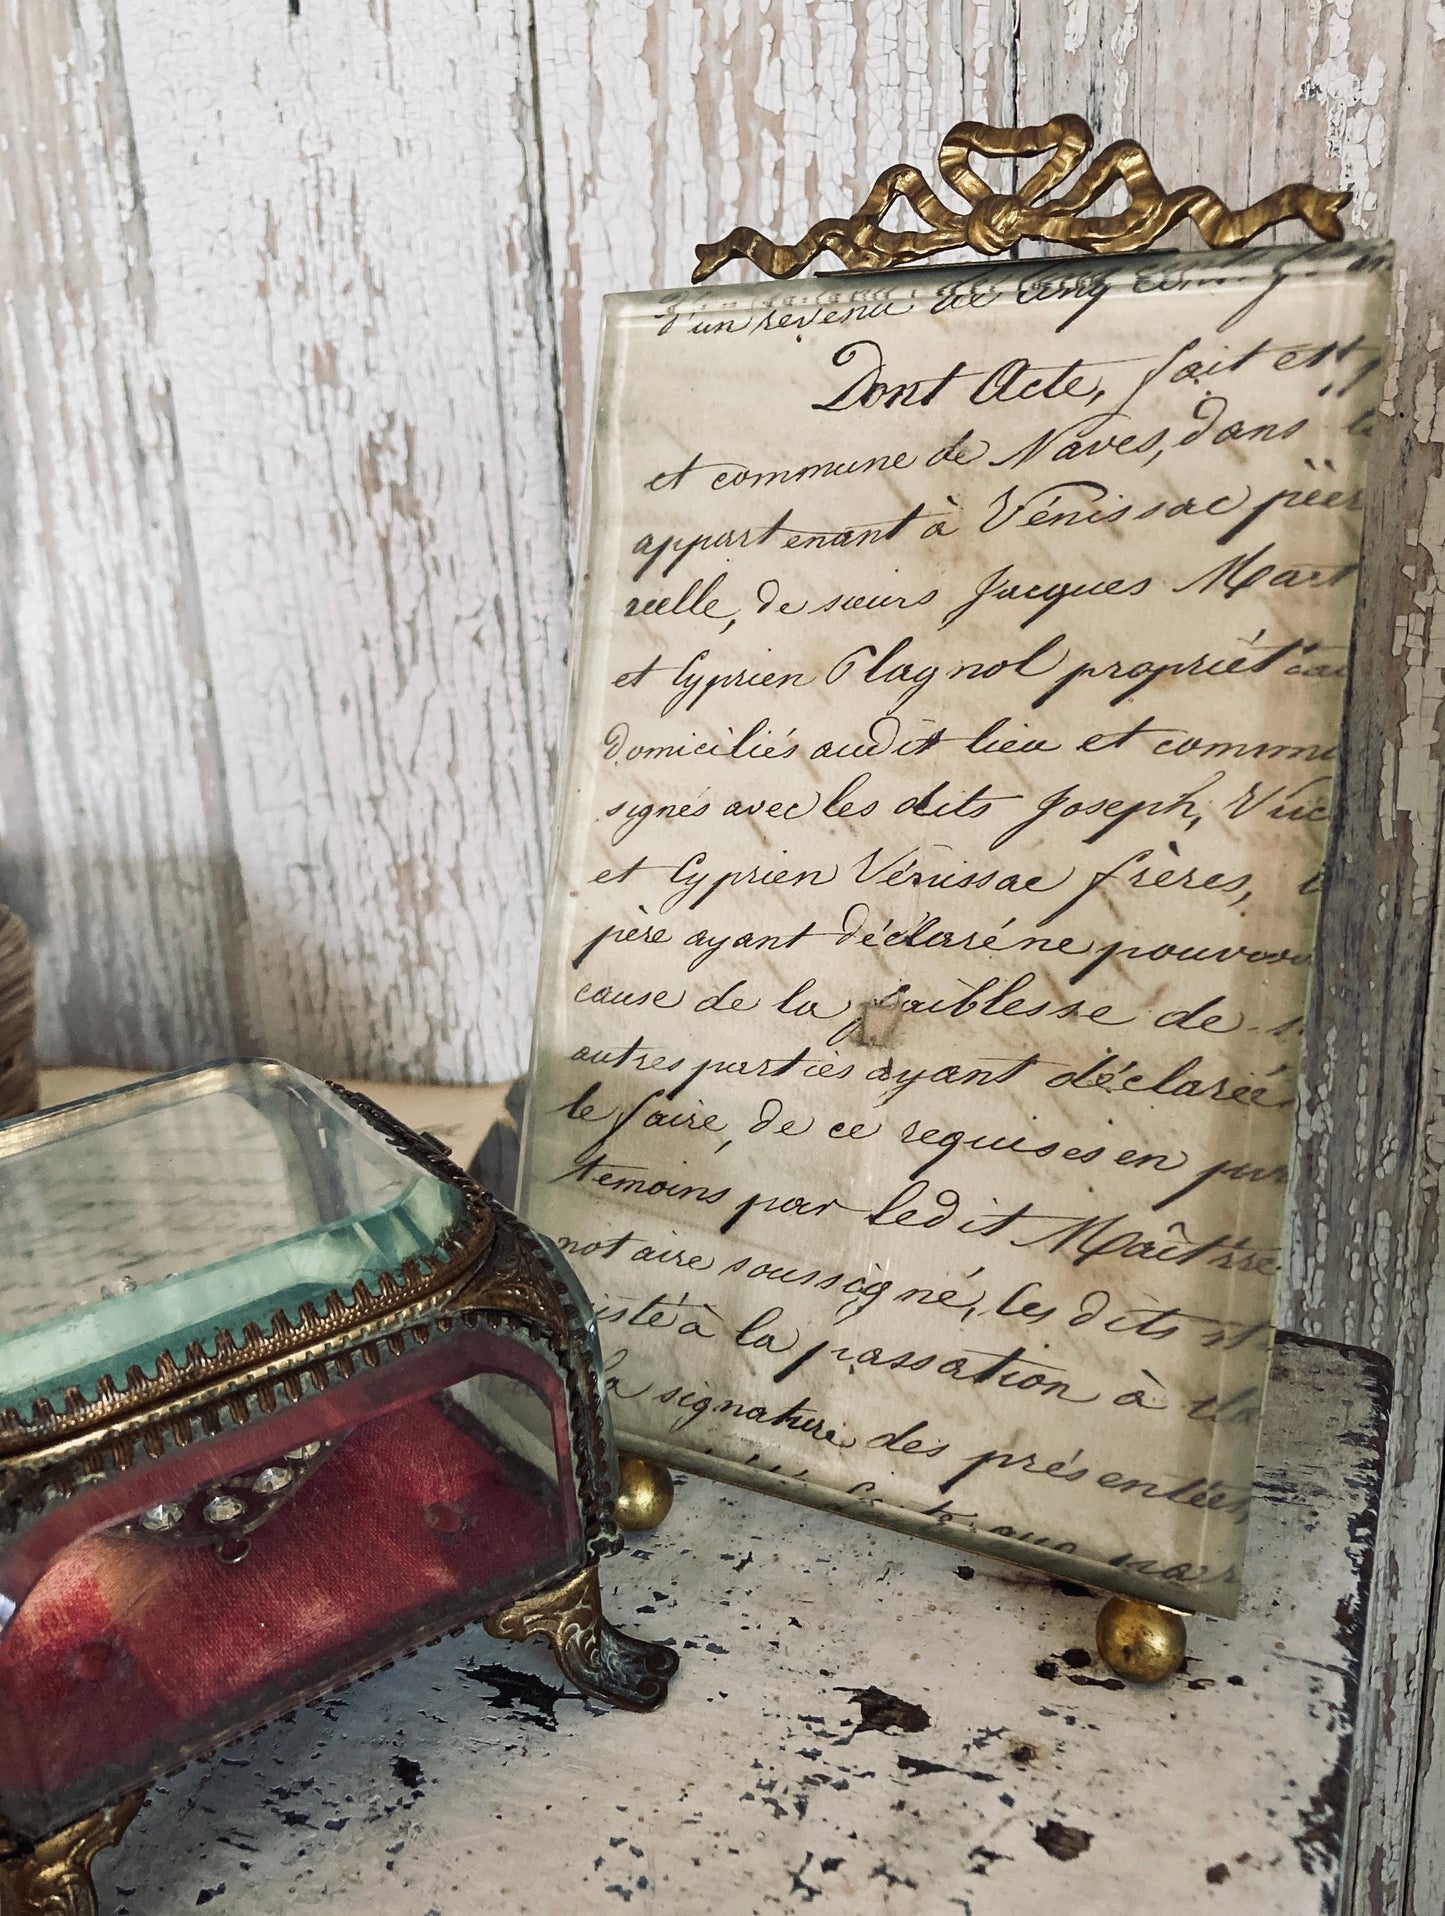 d'un revenu de cinq cents
Dont Acte, fait et
et commune de Naves, dans
appartenant à Vénissac père
relle, de sieurs Jacques Mart
et Cyprien Plagnol propriétai
domiciliés audit lieu et commu
signés avec les dits Joseph,
et Cyprien Vénissac frères,
père ayant déclaré ne pouvoir
cause de la faiblesse de s
autres parties ayant déclaré
le faire, de ce requises en
temoins par ledit Maître
notaire soussigné, les dits
isté à la passation à
la signature des présentes,
que